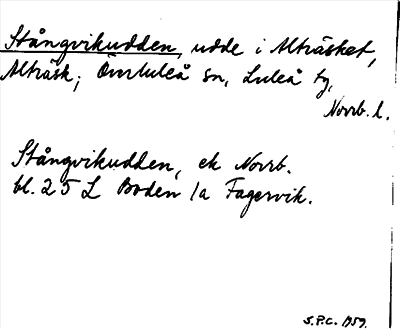 Stångvikudden, udde i Alträsket,
Alträsk; Överluleå sn, Luleå tg,
Norrb. l.
Stångvikudden, ek Norrb.
bl. 25 L Boden 1a Fagervik.
S.P.C. 1959.